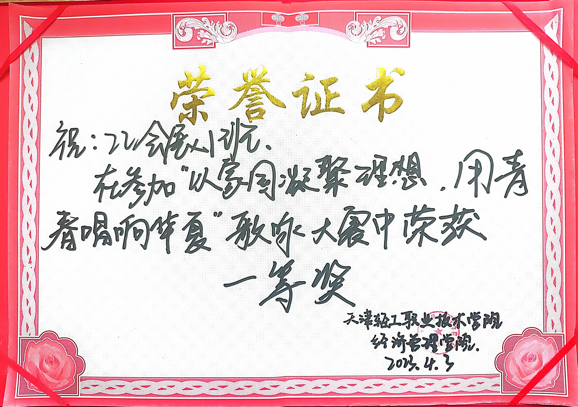 荣誉证书
祝：22会展1班.
在参加“以家国凝聚理想，用青
春唱响华夏”歌咏大赛中荣获
一等奖
天津轻工职业技术学院
经济管理学院.
2023.4.3